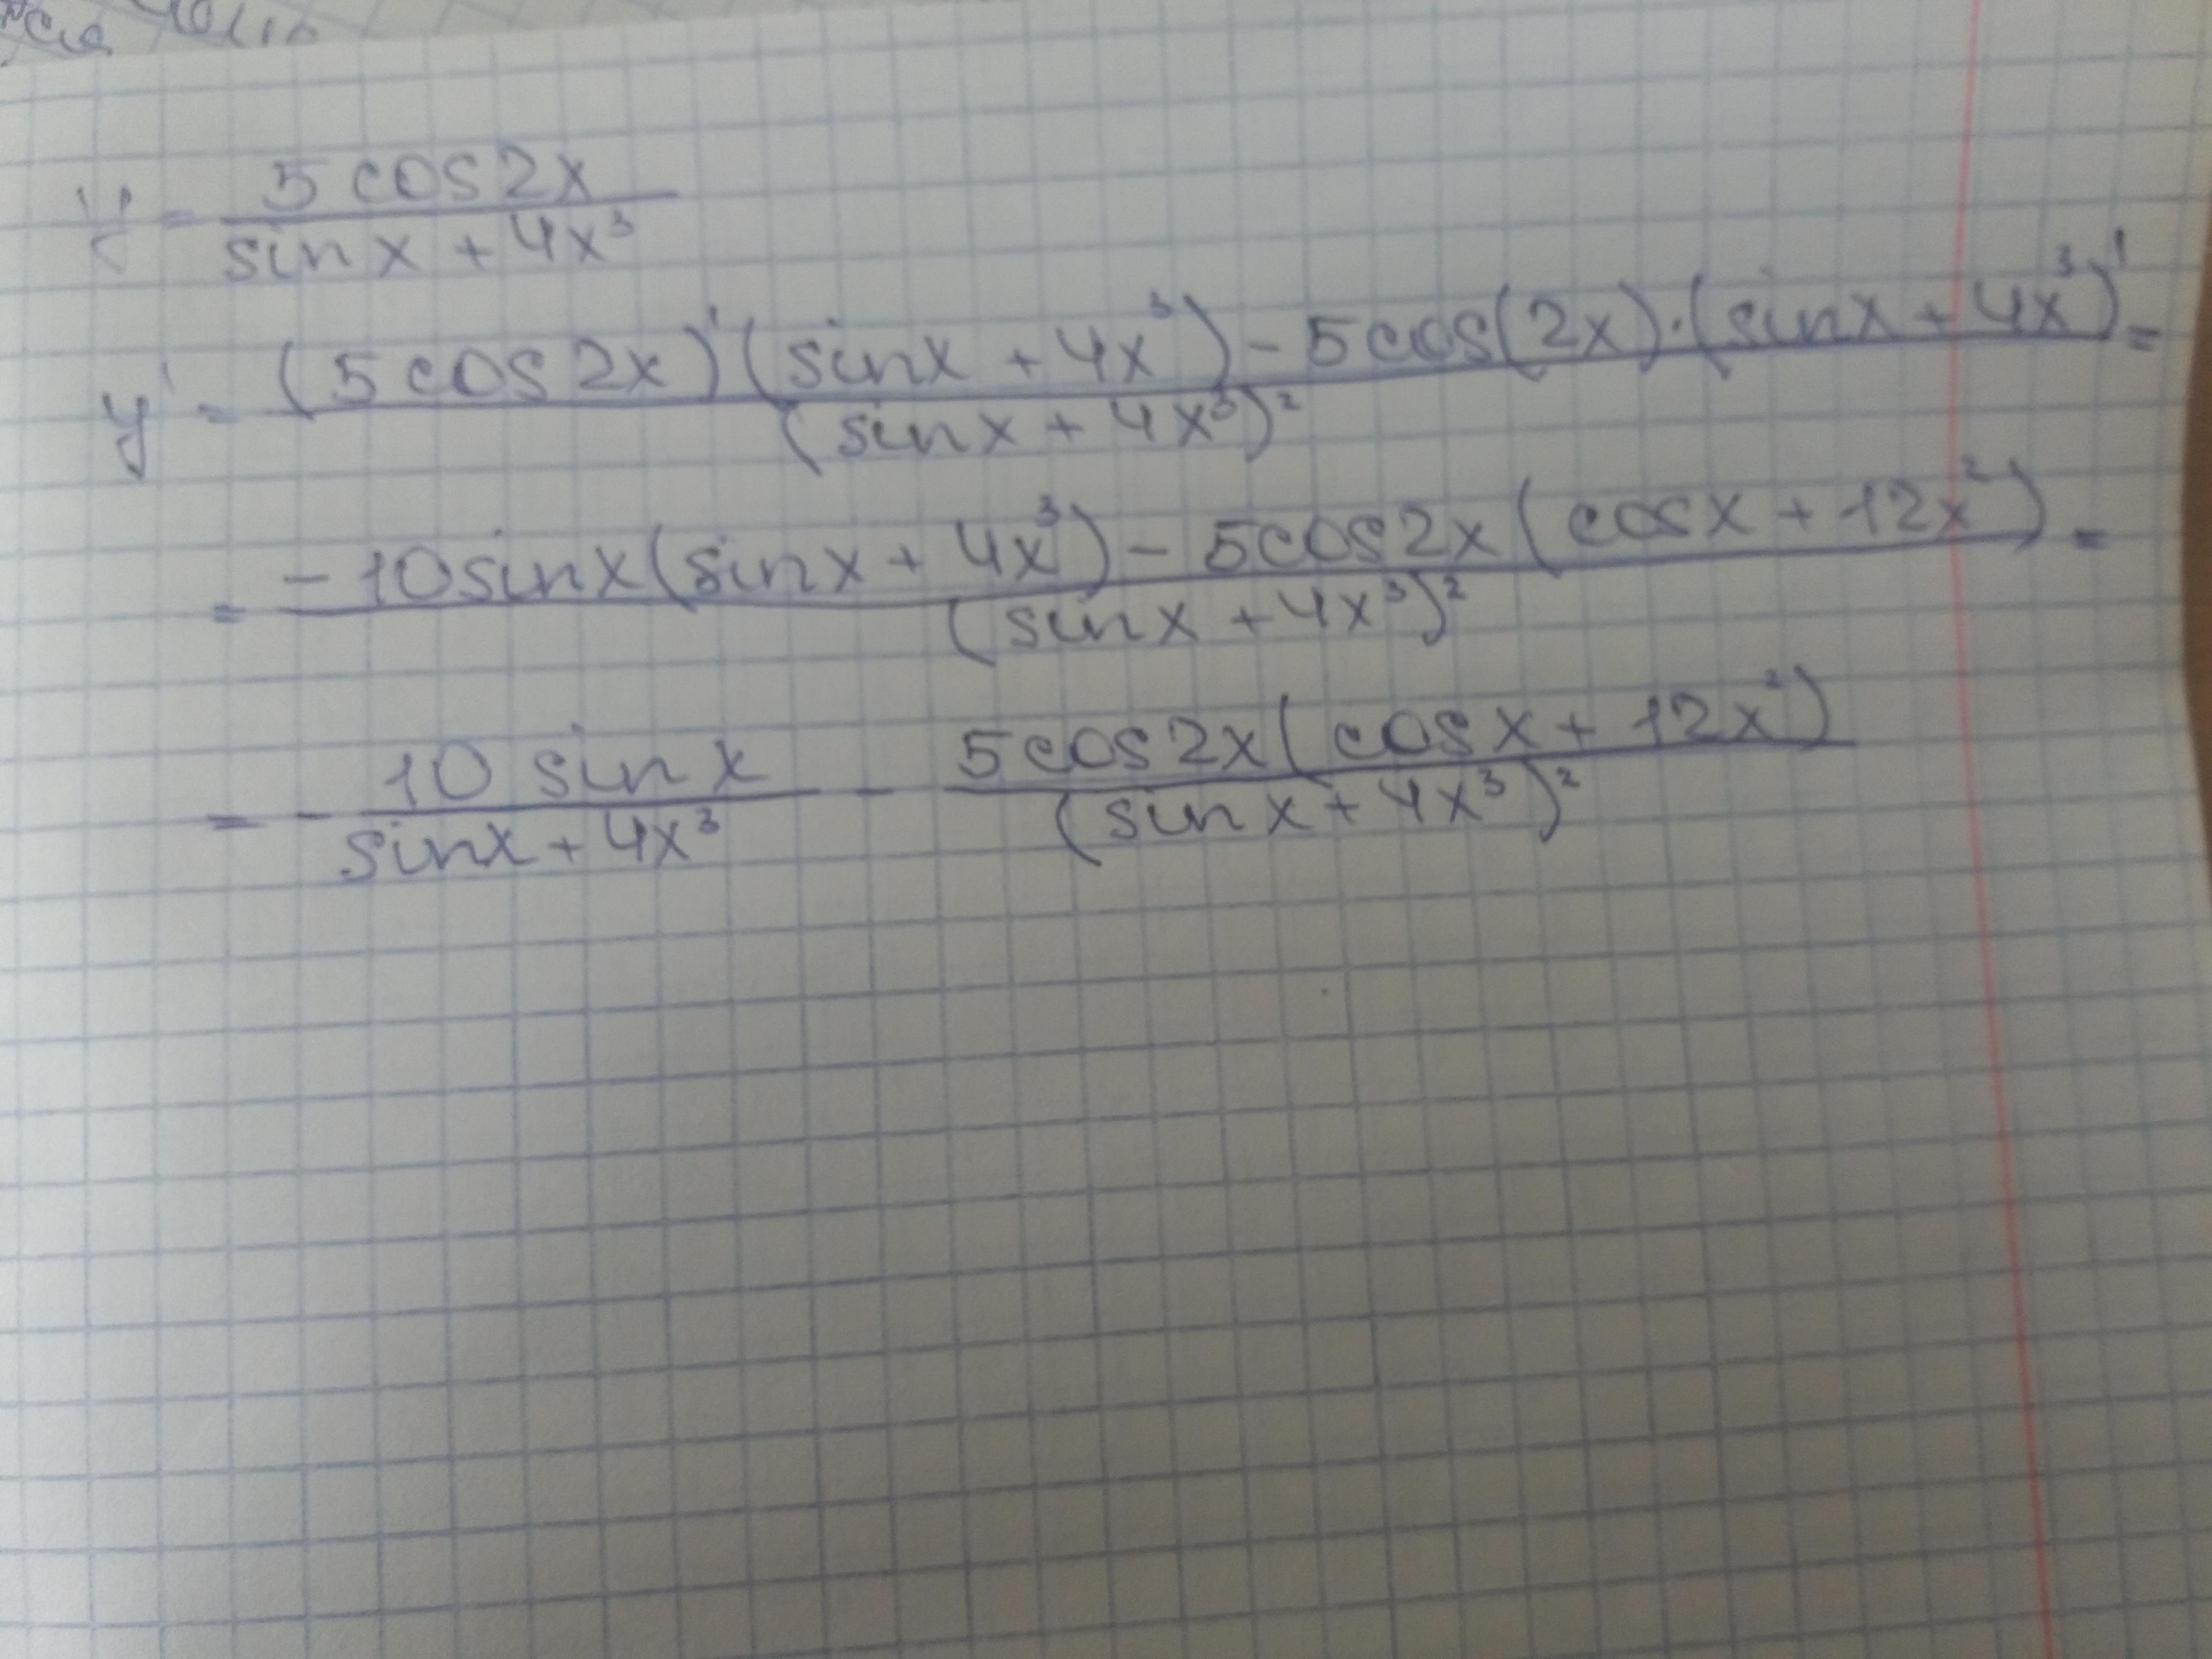 = 5 cos 2x / sin x + 4x³
y' = (5 cos 2x)' (sin x + 4x³) - 5 cos(2x) · (sin x + 4x³)' / (sin x + 4x³)² =
= -10 sin x (sin x + 4x³) - 5 cos 2x (cos x + 12x²) / (sin x + 4x³)² =
= - 10 sin x / sin x + 4x³ - 5 cos 2x (cos x + 12x²) / (sin x + 4x³)²